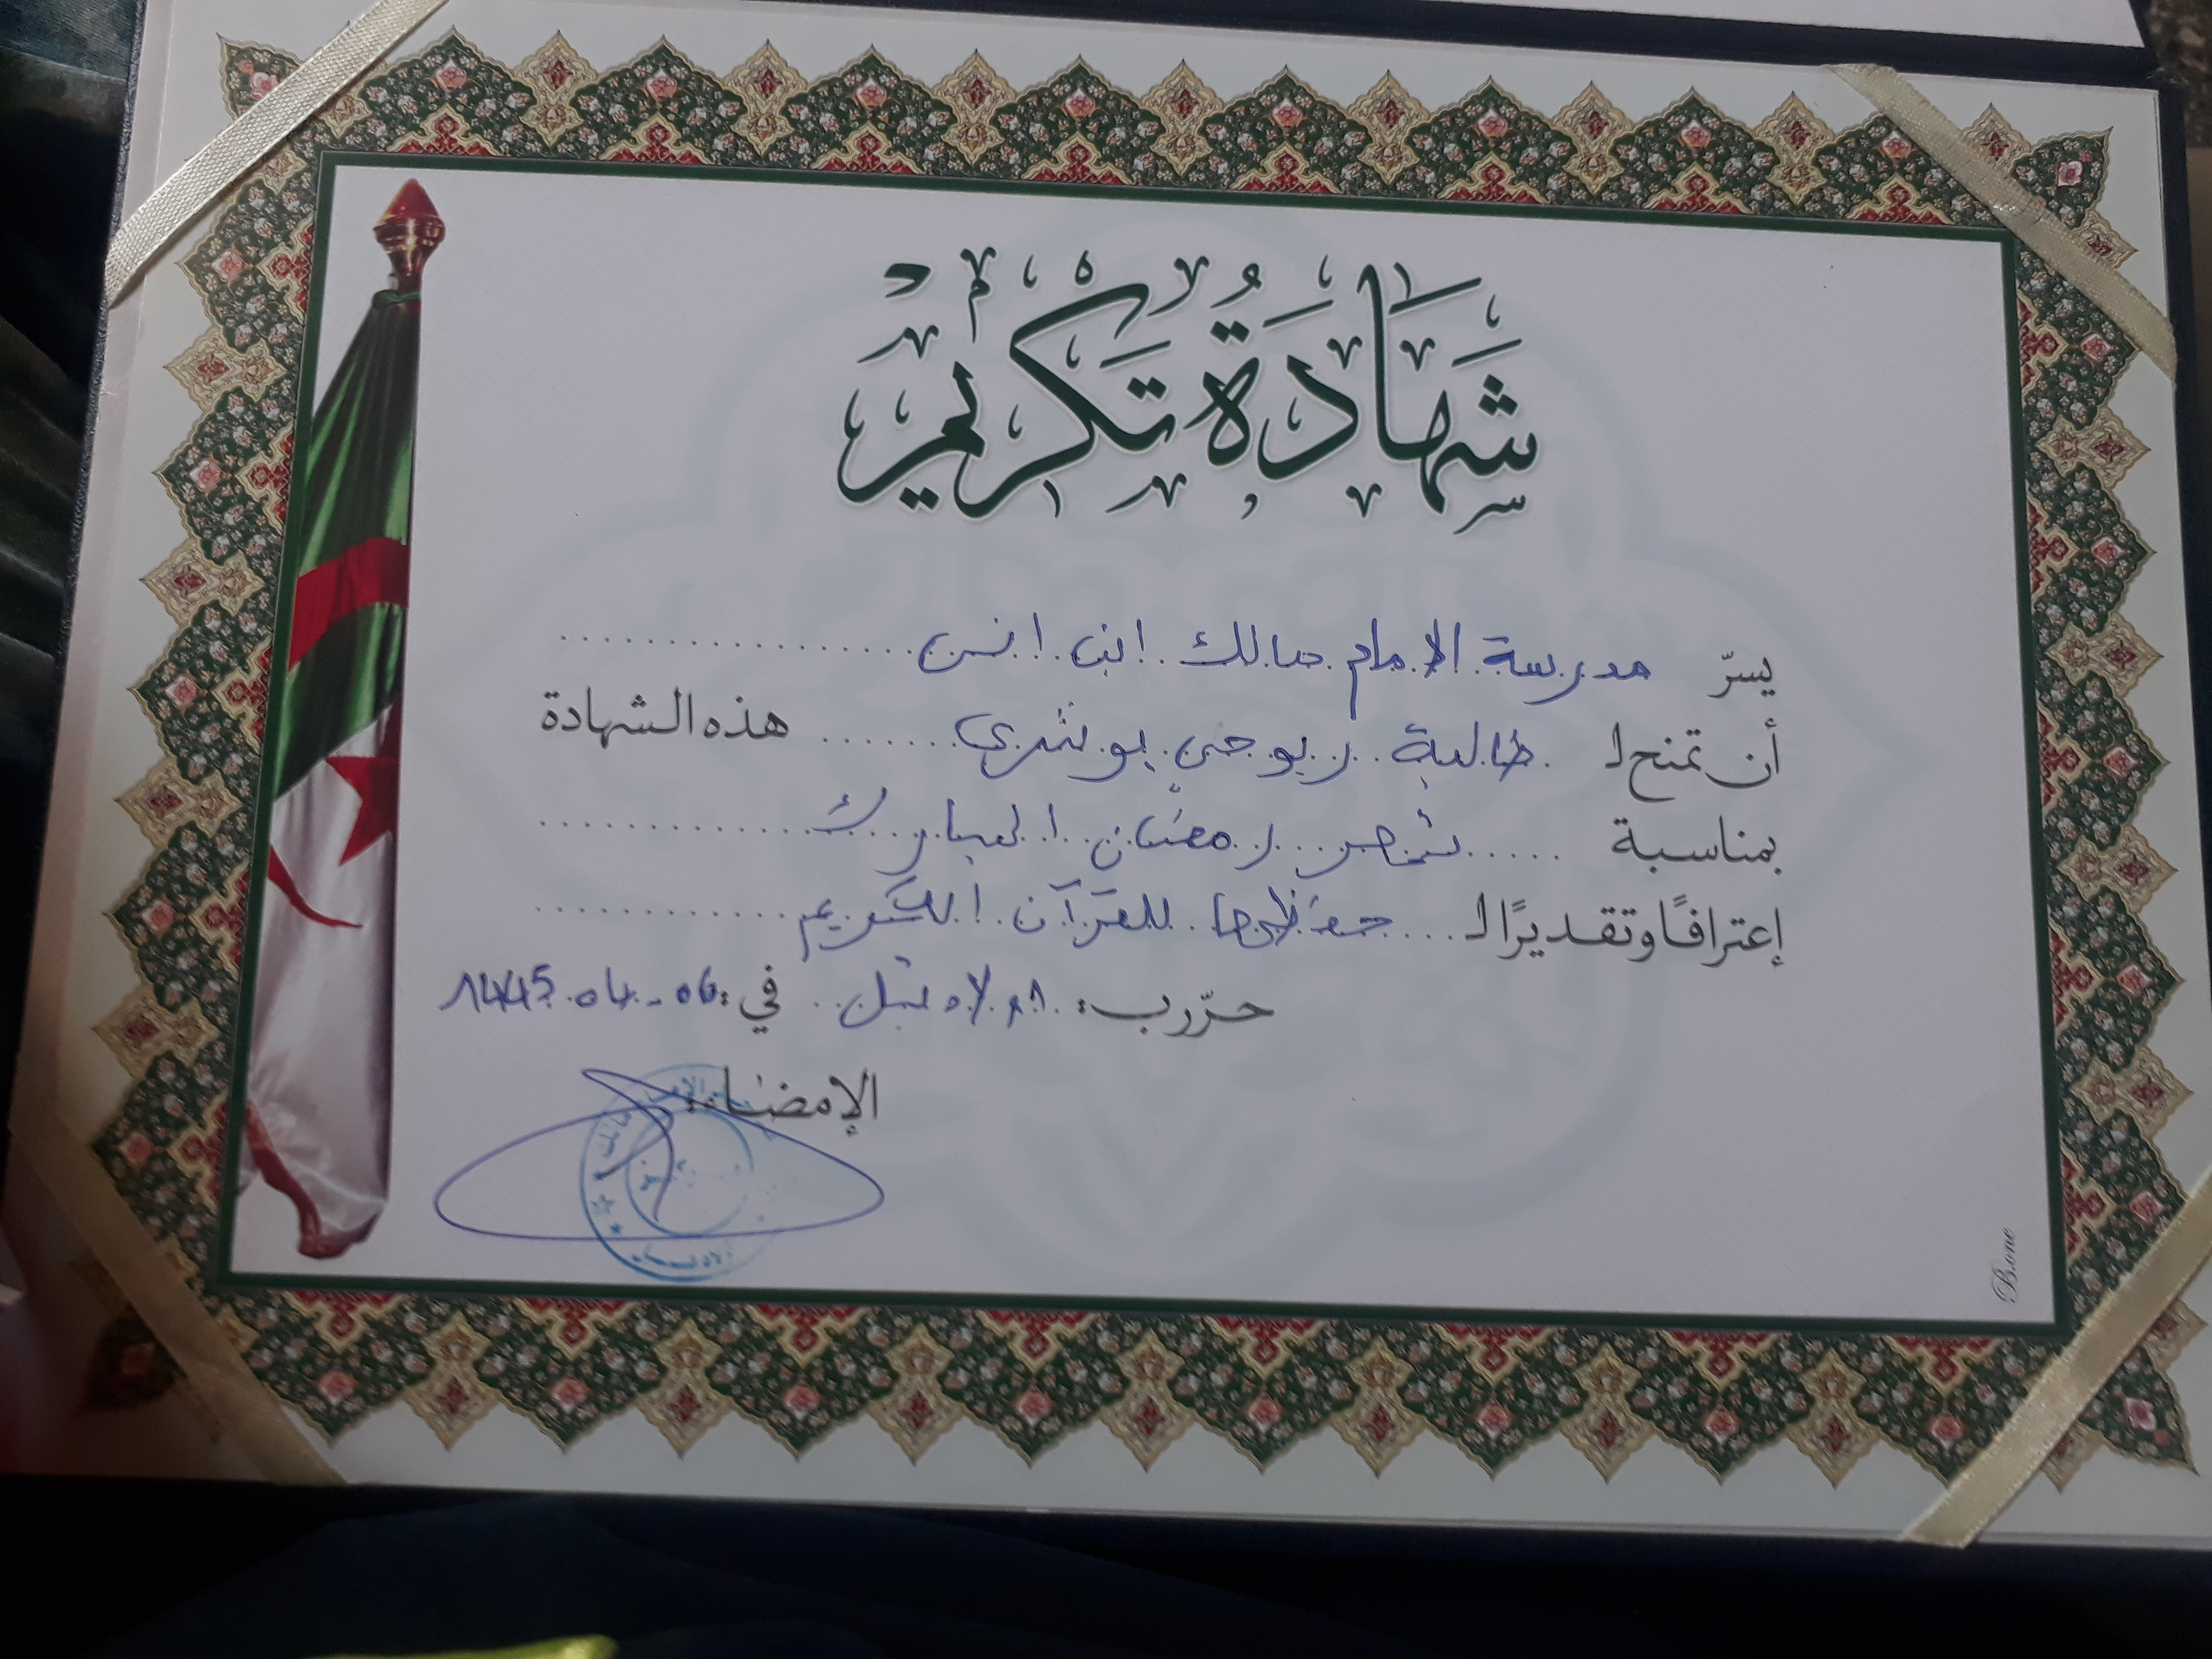 شَهَادَةُ تَكْرِيمٍ
يسرّ مدرسة الإمام مالك ابن انس
أن تمنح لـ طالبة ربوحي بوشري هذه الشهادة
بمناسبة شهر رمضان المبارك
إعترافًا وتقديرًا لـ حفظها للقرآن الكريم
حرّر بـ: في: 06-04-1445
الإمضاء
B.one